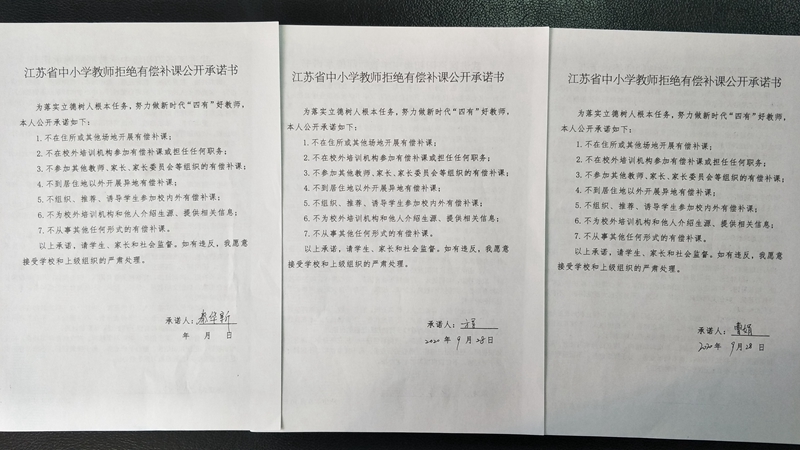 江苏省中小学教师拒绝有偿补课公开承诺书
为落实立德树人根本任务，努力做新时代“四有”好教师，
本人公开承诺如下：
1.不在住所或其他场地开展有偿补课；
2.不在校外培训机构参加有偿补课或担任任何职务；
3.不参加其他教师、家长、家长委员会等组织的有偿补课；
4.不到居住地以外开展异地有偿补课；
5.不组织、推荐、诱导学生参加校内外有偿补课；
6.不为校外培训机构和他人介绍生源、提供相关信息；
7.不从事其他任何形式的有偿补课。
以上承诺，请学生、家长和社会监督。如有违反，我愿意
接受学校和上级组织的严肃处理。
承诺人：秦华新
年 月 日
江苏省中小学教师拒绝有偿补课公开承诺书
为落实立德树人根本任务，努力做新时代“四有”好教师，
本人公开承诺如下：
1.不在住所或其他场地开展有偿补课；
2.不在校外培训机构参加有偿补课或担任任何职务；
3.不参加其他教师、家长、家长委员会等组织的有偿补课；
4.不到居住地以外开展异地有偿补课；
5.不组织、推荐、诱导学生参加校内外有偿补课；
6.不为校外培训机构和他人介绍生源、提供相关信息；
7.不从事其他任何形式的有偿补课。
以上承诺，请学生、家长和社会监督。如有违反，我愿意
接受学校和上级组织的严肃处理。
承诺人：
2020年 9月 28日
江苏省中小学教师拒绝有偿补课公开承诺书
为落实立德树人根本任务，努力做新时代“四有”好教师，
本人公开承诺如下：
1.不在住所或其他场地开展有偿补课；
2.不在校外培训机构参加有偿补课或担任任何职务；
3.不参加其他教师、家长、家长委员会等组织的有偿补课；
4.不到居住地以外开展异地有偿补课；
5.不组织、推荐、诱导学生参加校内外有偿补课；
6.不为校外培训机构和他人介绍生源、提供相关信息；
7.不从事其他任何形式的有偿补课。
以上承诺，请学生、家长和社会监督。如有违反，我愿意
接受学校和上级组织的严肃处理。
承诺人：曹娟
2020年 9月28日